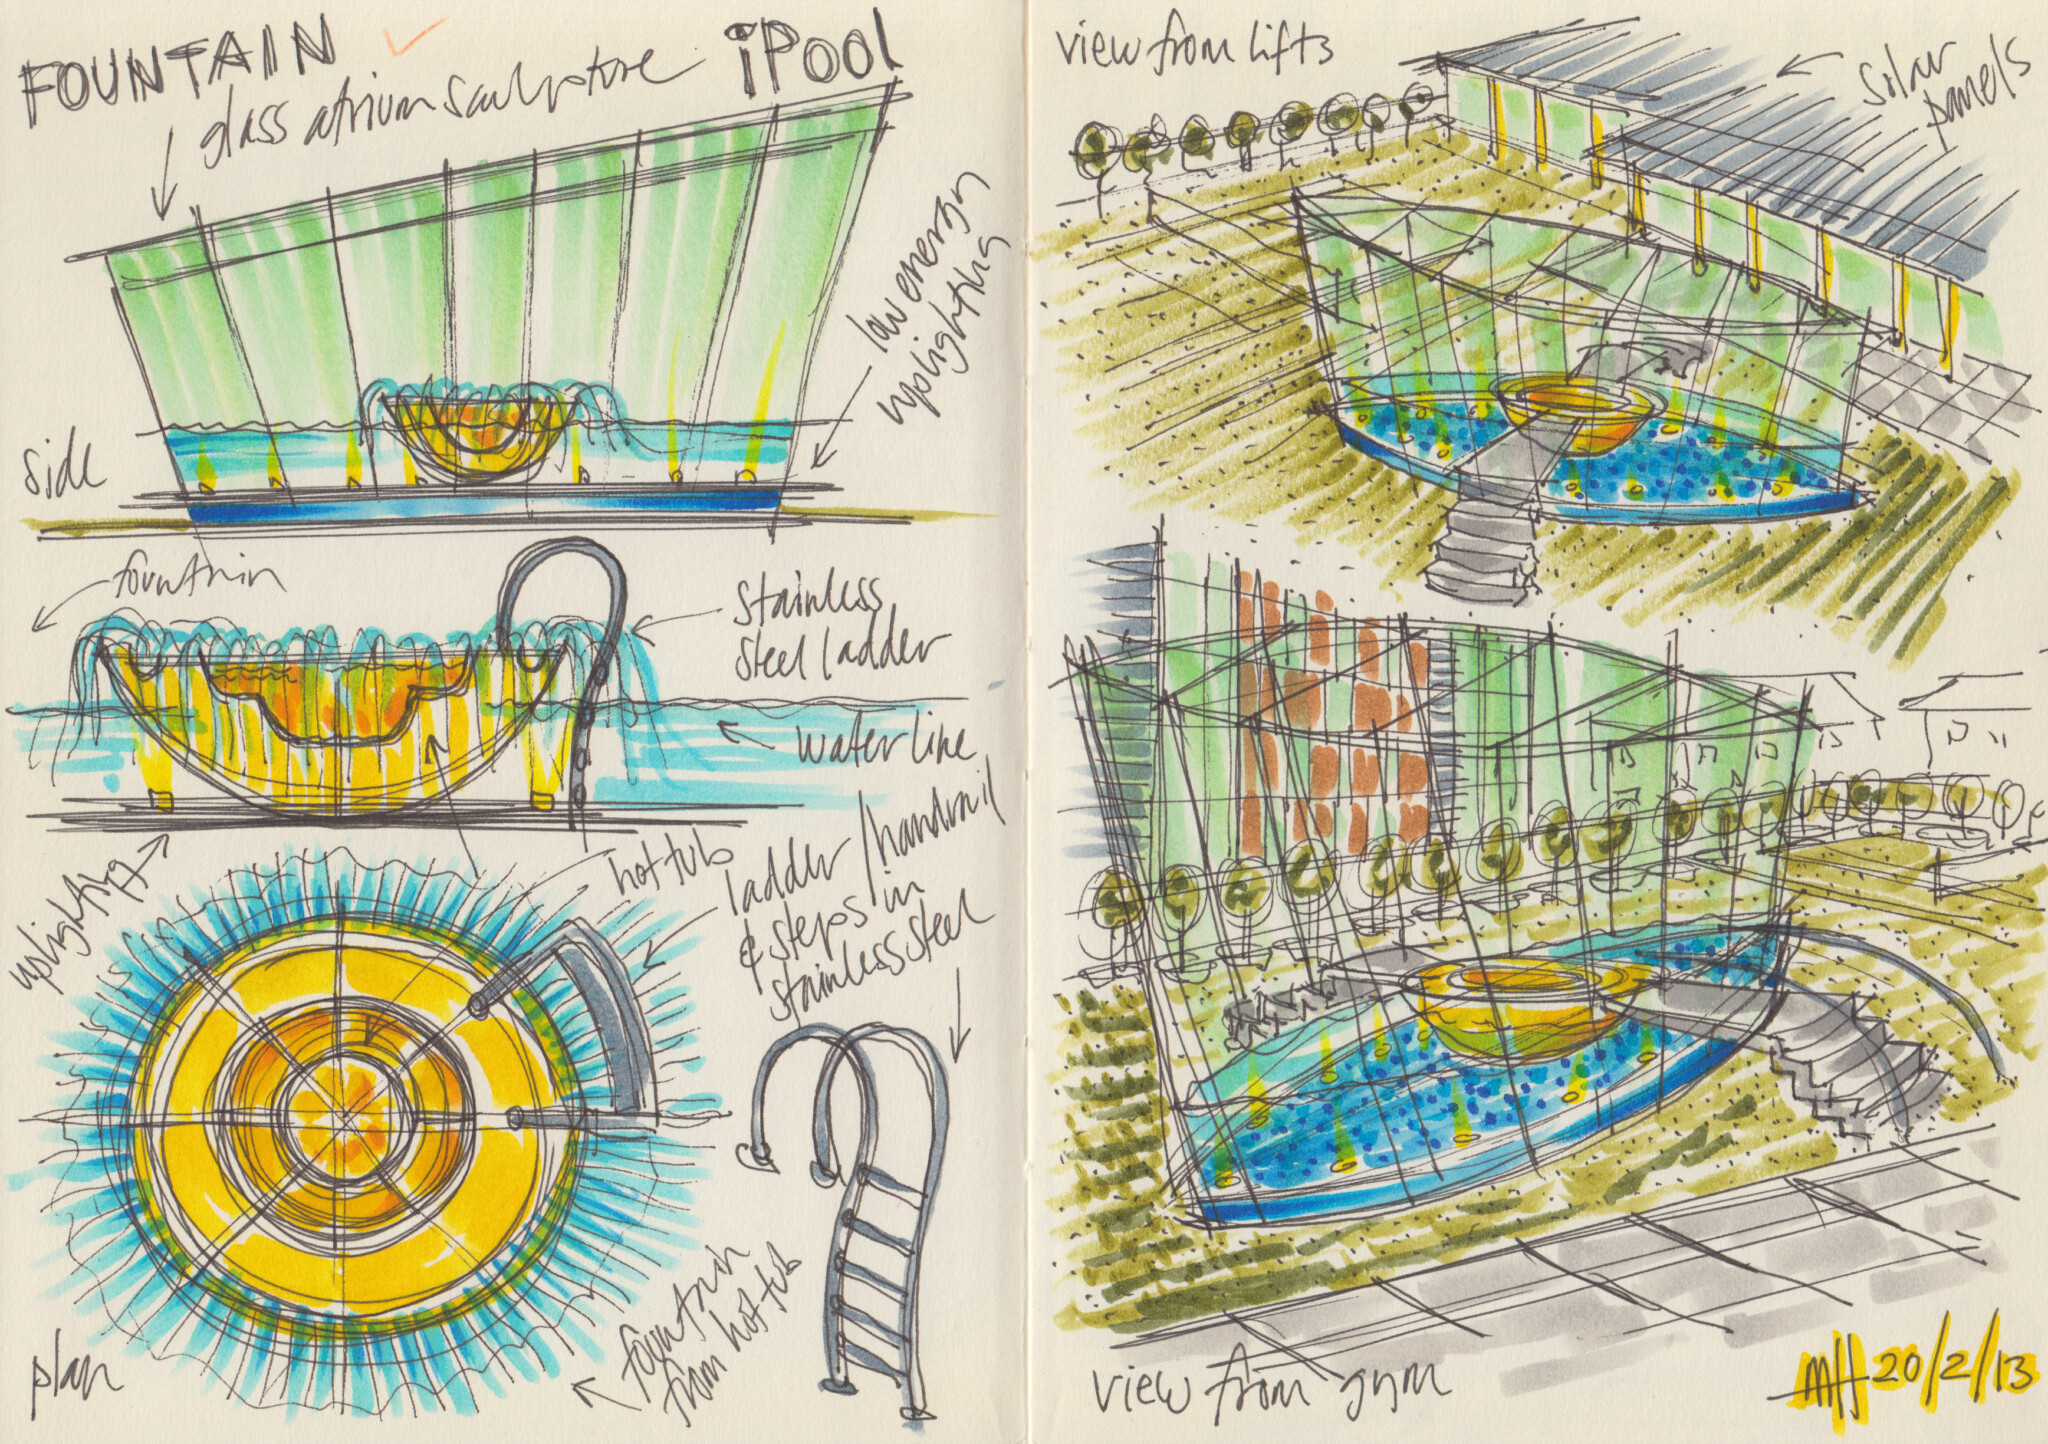 FOUNTAIN
iPool
glass atrium sculpture
low energy
uplighting
side
fountain
stainless
steel ladder
water line
uplighting
hot tub
ladder/handrail
& steps in
stainless steel
fountain
from hot tub
plan
view from lifts
solar
panels
view from gym
MH 20/2/13